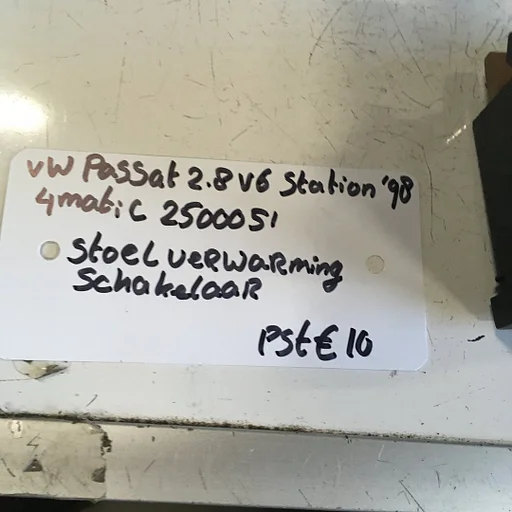 VW Passat 2.8 V6 Station '98
4matic 2500051
Stoelverwarming
Schakelaar
PSt € 10